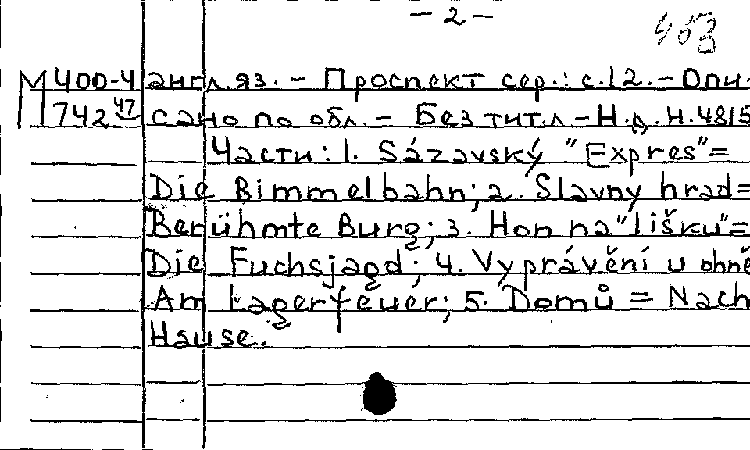 – 2 –
463
М 400-4 англ.яз. – Проспект сер.: с.12. – Опи-
742 47 сано по обл. – Без тит.л – Н.д. Н.4815
Части: 1. Sázavský "Expres" =
Die Bimmelbahn; 2. Slavný hrad =
Berühmte Burg; 3. Hon na "lišku" =
Die Fuchsjagd; 4. Vyprávění u ohně
Am Lagerfeuer; 5. Domů = Nach
Hause.